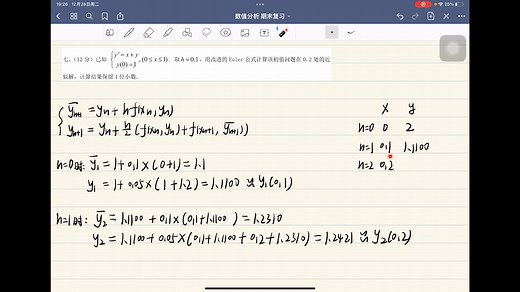 19:26 12月20日周二
数值分析 期末复习
25%
七、(12 分) 已知 { y' = x + y , (0 ≤ x ≤ 1). 取 h = 0.1, 用改进的 Euler 公式计算该初值问题在 0.2 处的近
y(0) = 1
似解, 计算结果保留 4 位小数.
{ ȳn+1 = yn + h f(xn, yn)
yn+1 = yn + h/2 (f(xn, yn) + f(xn+1, ȳn+1))
x y
n=0 0 2
n=1 0.1 1.1100
n=2 0.2
n=0时: ȳ1 = 1 + 0.1 × (0+1) = 1.1
y1 = 1 + 0.05 × (1 + 1.2) = 1.1100 ≈ y1(0.1)
n=1时: ȳ2 = 1.1100 + 0.1 × (0.1 + 1.1100) = 1.2310
y2 = 1.1100 + 0.05 × (0.1 + 1.1100 + 0.2 + 1.2310) = 1.2421 ≈ y2(0.2)